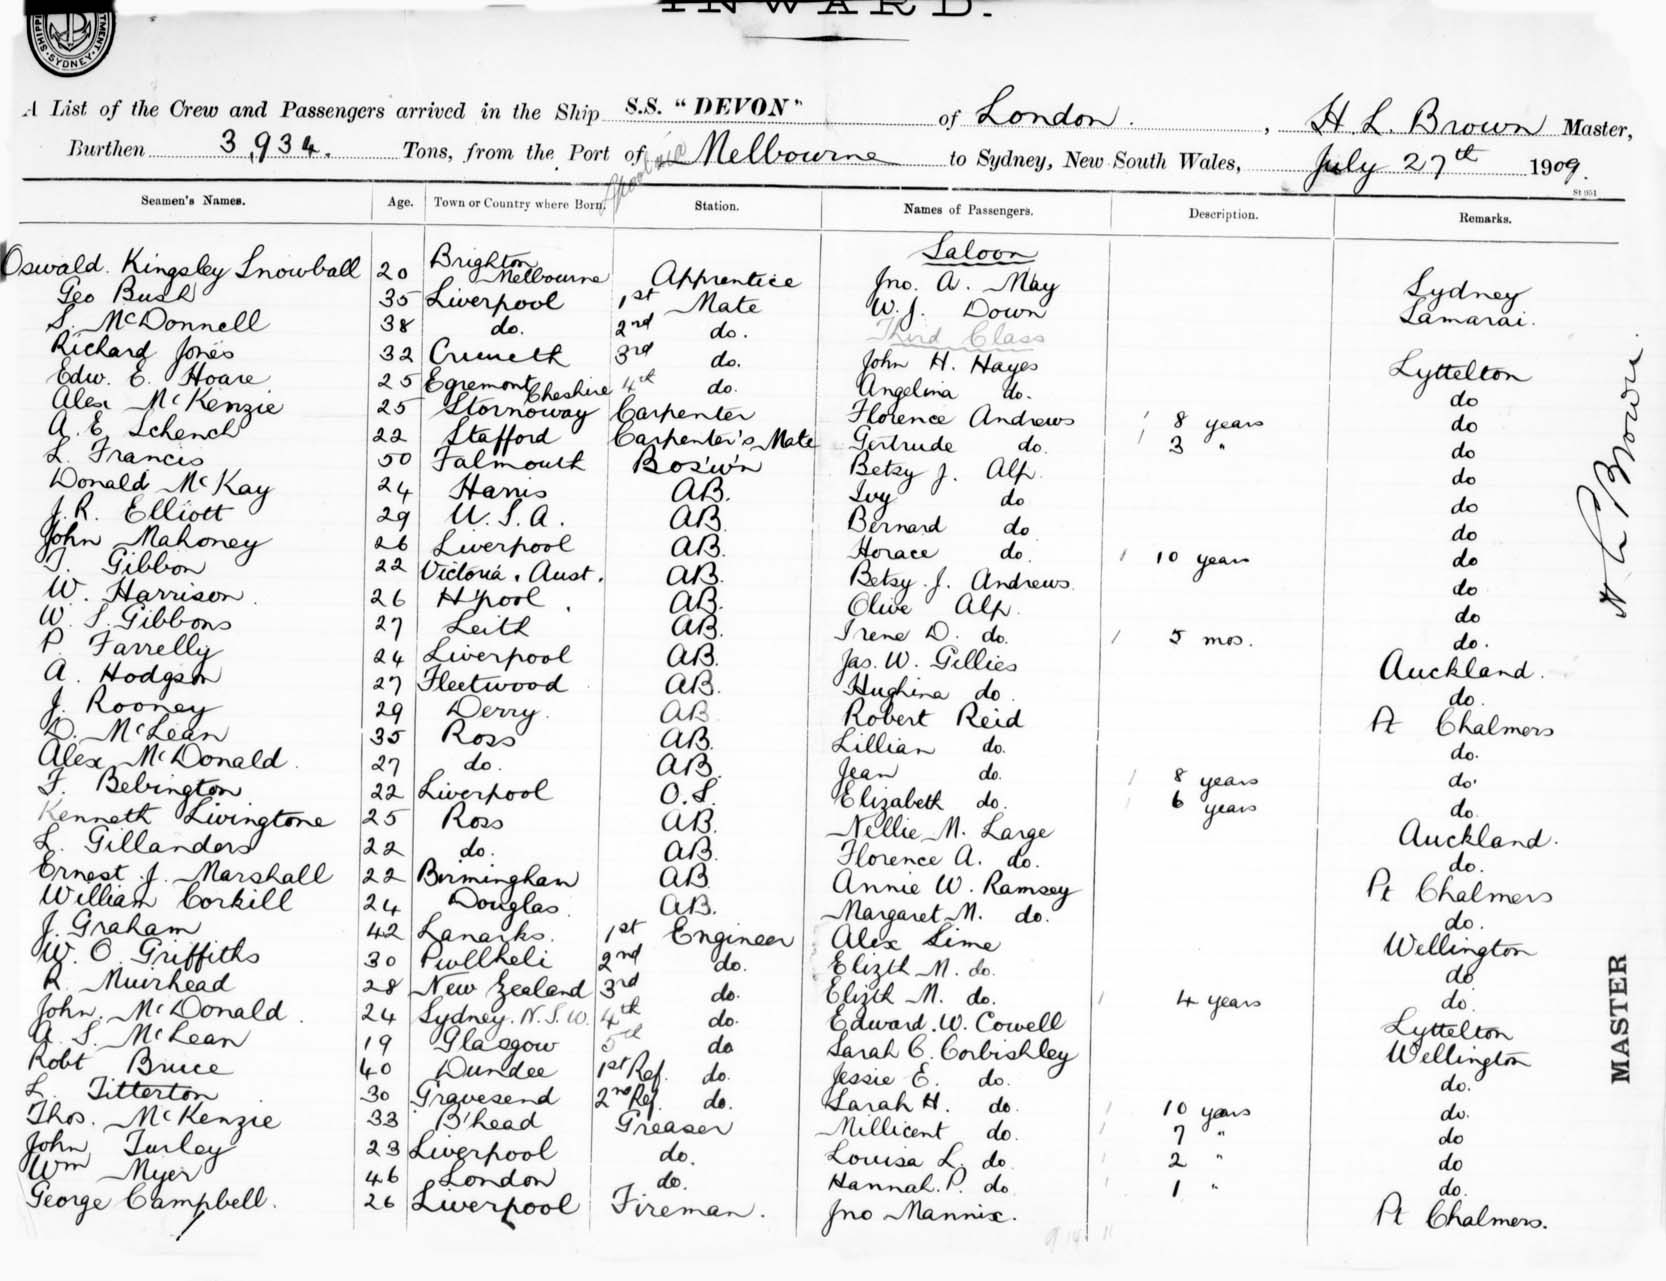 INWARD.
SHIPPI
TMENT.
SYDNEY
A List of the Crew and Passengers arrived in the Ship S.S. "DEVON" of London. , H. L. Brown Master,
Burthen 3,934. Tons, from the Port of Melbourne to Sydney, New South Wales, July 27th 1909.
St 951
Seamen's Names. Age. Town or Country where Born. Station. Names of Passengers. Description. Remarks.
Saloon
Oswald. Kingsley Snowball 20 Brighton Melbourne Apprentice Jno. A. May Sydney
Geo Bush 35 Liverpool 1st Mate W. J. Down Samarai.
S. McDonnell 38 do. 2nd do. Third Class
Richard Jones 32 3rd do. John H. Hayes Lyttelton
Edw. E. Hoare 25 Egremont Cheshire 4th do. Angelina do. do
Alex McKenzie 25 Stornoway Carpenter Florence Andrews 1 8 years do
A. E. Schench 22 Stafford Carpenter's Mate Gertrude do. 1 3 " do
L. Francis 50 Falmouth Bos'w'n Betsy J. Alp. do
Donald McKay 24 Harris AB. Ivy do do
J. R. Elliott 29 U. S. A. AB. Bernard do do
John Mahoney 26 Liverpool AB. Horace do 1 10 years do
T. Gibbon 22 Victoria, Aust. AB. Betsy. J. Andrews. do
W. Harrison 26 H'pool. AB. Olive Alp. do
W. S. Gibbons 27 Leith AB. Irene D. do. 1 5 mos. do.
P. Farrelly 24 Liverpool AB. Jas. W. Gillies Auckland.
A. Hodgson 27 Fleetwood AB. Hughina do. do.
J. Rooney 29 Derry. AB Robert Reid Pt Chalmers
D. McLean 35 Ross AB. Lillian do. do.
Alex McDonald. 27 do. AB. Jean do. 1 8 years do.
F. Bebington 22 Liverpool O.S. Elizabeth do. 1 6 years do.
Kenneth Livingtone 25 Ross AB. Nellie M. Large Auckland.
L. Gillanders 22 do. AB. Florence A. do. do.
Ernest J. Marshall 22 Birmingham AB. Annie W. Ramsey Pt Chalmers
William Corkill 24 Douglas. AB. Margaret M. do. do.
J. Graham 42 Lanarks. 1st Engineer Alex Sime Wellington
W. O. Griffiths 30 Pwllheli 2nd do. Elizth M. do. do
R. Muirhead 28 New Zealand 3rd do. Elizth M. do. 1 4 years do.
John. McDonald. 24 Sydney. N.S.W. 4th do. Edward. W. Cowell Lyttelton
A. S. McLean 19 Glasgow 5th do Sarah C. Corbishley Wellington
Robt Bruce 40 Dundee 1st Ref. do. Jessie E. do. do.
L. Titterton 30 Gravesend 2nd Ref. do. Sarah H. do. 1 10 years do.
Thos. McKenzie 33 B'head Greaser Millicent do. 1 7 " do
John Turley 23 Liverpool do. Louisa L. do 1 2 " do
Wm Myer 46 London do. Hannah. P. do 1 1 " do.
George Campbell. 26 Liverpool Fireman. Jno Mannix. Pt Chalmers.
H L Brown.
MASTER